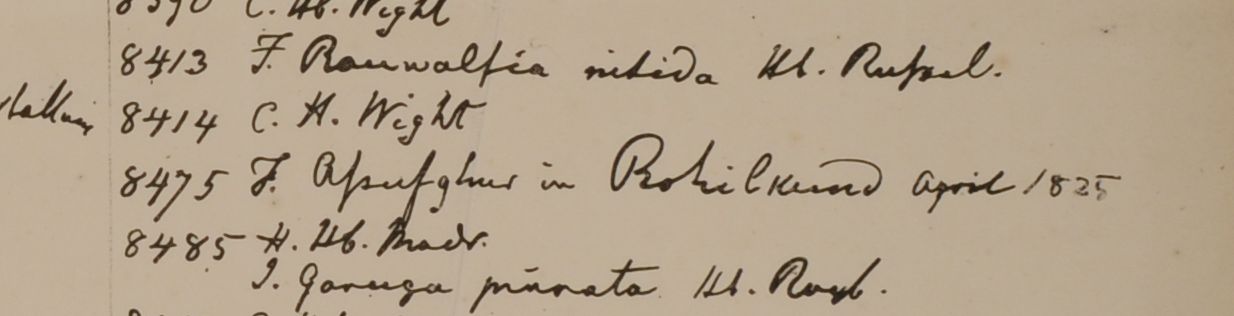 8390 C. Hb. Wight
8413 F. Rauwolfia nitida Hb. Russel.
8414 C. H. Wight
8475 F. in Rohilkund April 1825
8485 H. Hb. Madr.
I. Garuga pinnata Hb. Roxb.